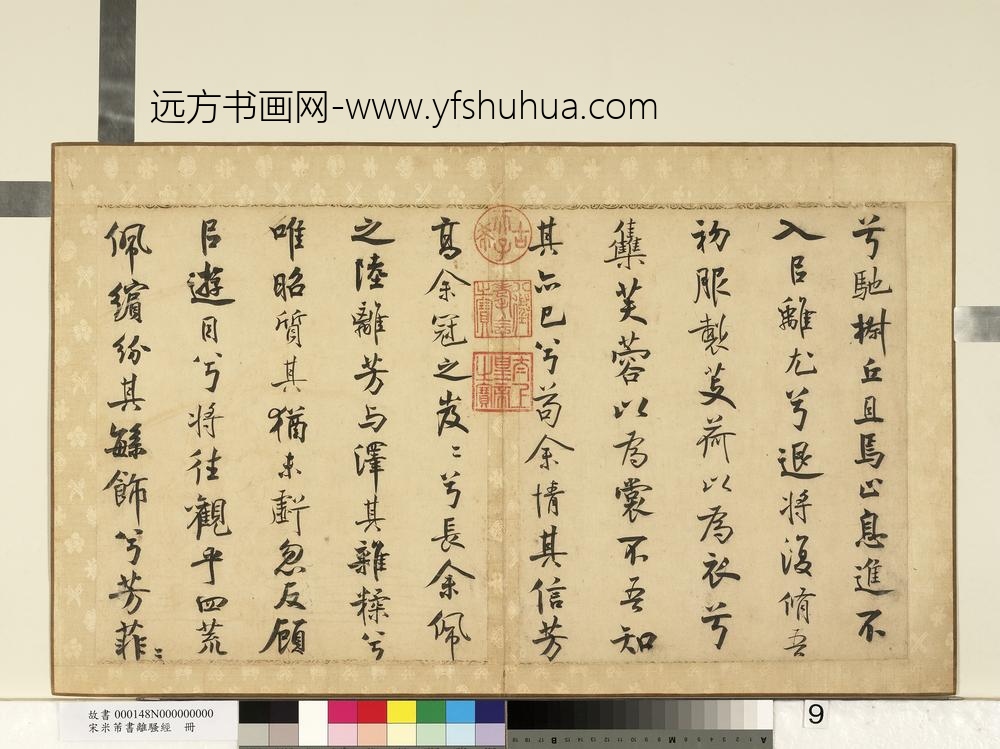 远方书画网-www.yfshuhua.com
兮馳椒丘且焉止息進不
入㠯離尤兮退將復脩吾
初服製芰荷以為衣兮
集芙蓉以為裳不吾知
其亦已兮苟余情其信芳
高余冠之岌〻兮長余佩
之陸離芳与澤其雜糅兮
唯昭質其猶未虧忽反顧
㠯遊目兮將往觀乎四荒
佩繽紛其繁飾兮芳菲〻
古希天子
太上皇帝之寶
故書 000148N000000000
宋米芾書離騷經 冊
9